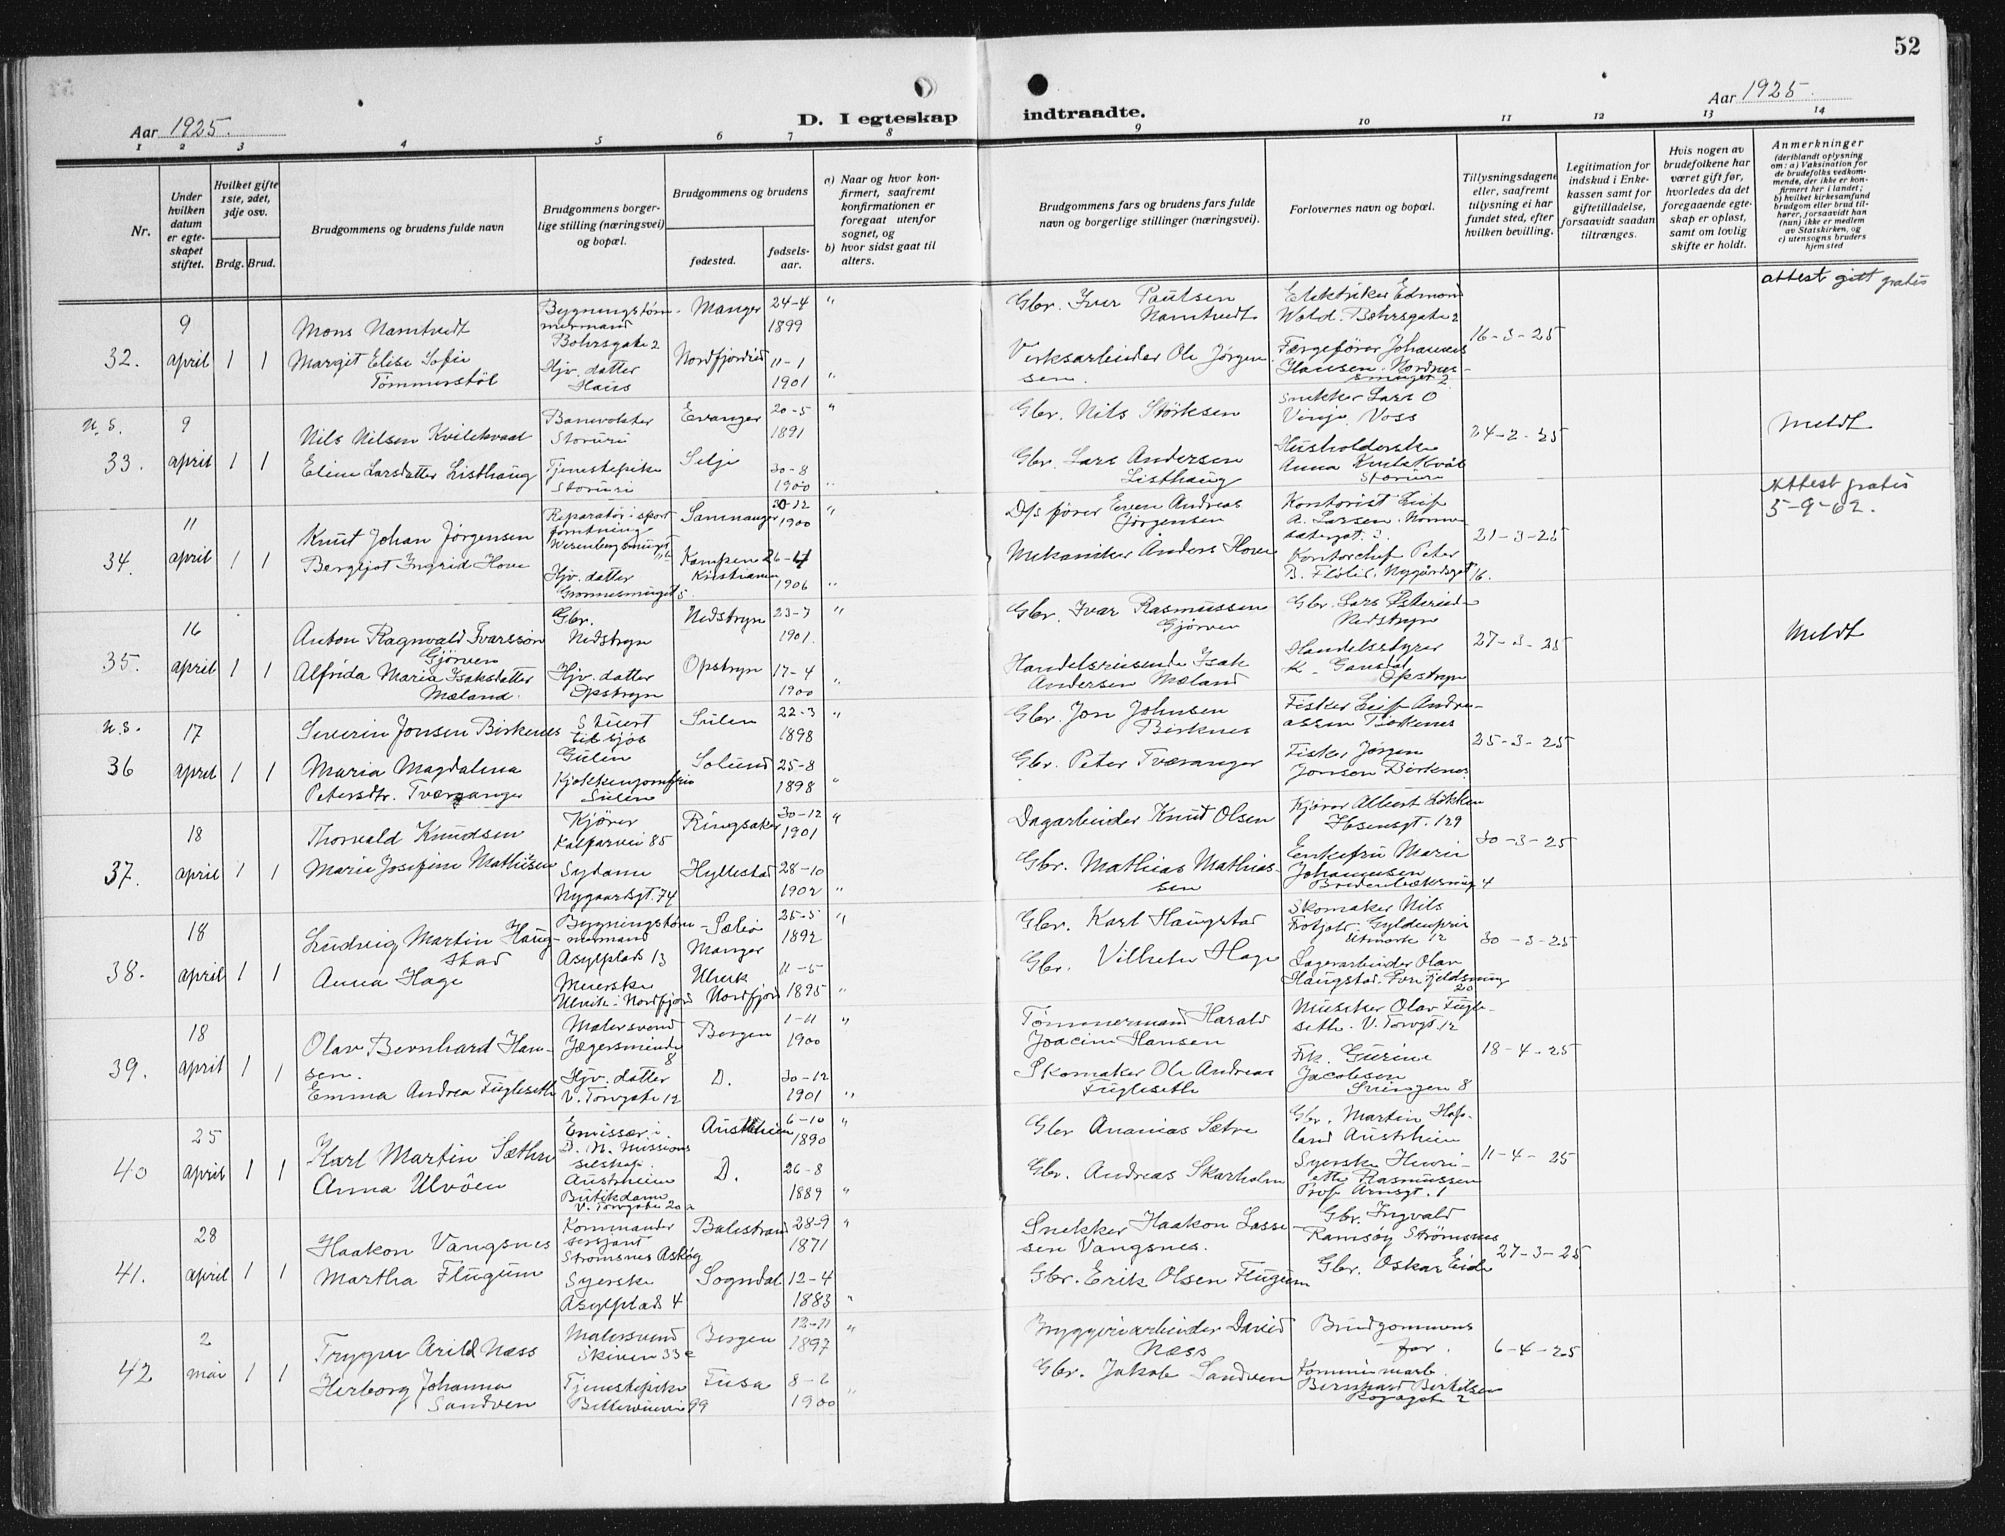 52
Aar 1925.
D. I egteskap indtraadte.
Aar 1925.
1 2 3 4 5 6 7 8 9 10 11 12 13 14
Nr.
Under hvilken datum er egteskapet stiftet.
Hvilket gifte 1ste, 2det, 3dje osv.
Brdg. Brud.
Brudgommens og brudens fulde navn
Brudgommens borgerlige stilling (næringsvei) og bopæl.
Brudgommens og brudens
fødested.
fødselsaar.
a) Naar og hvor konfirmert, saafremt konfirmationen er foregaat utenfor sognet, og
b) hvor sidst gaat til alters.
Brudgommens fars og brudens fars fulde navn og borgerlige stillinger (næringsvei).
Forlovernes navn og bopæl.
Tillysningsdagene eller, saafremt tillysning ei har fundet sted, efter hvilken bevilling.
Legitimation for indskud i Enkekassen samt for giftetilladelse, forsaavidt saadan tiltrænges.
Hvis nogen av brudefolkene har været gift før, hvorledes da det foregaaende egteskap er opløst, samt om lovlig skifte er holdt.
Anmerkninger
(deriblandt oplysning om: a) Vaksination for de brudefolks vedkommende, der ikke er konfirmert her i landet; b) hvilket kirkesamfund brudgom eller brud tilhører, forsaavidt han (hun) ikke er medlem av Statskirken, og c) utensogns bruders hjemsted
attest gitt gratis
32. 9 april 1 1
Mons Namtvedt
Margit Elise Sofie
Tømmerstøl
Bygningstømmermand
Bøhrsgate 2
Hjv. datter
Haus
Manger 24-4 1899 "
Nordfjordeid 11-1 1901 "
Gbr. Iver Paulsen
Namtvedt
Verksarbeider Ole Jørgensen.
Elektriker Edmon
Wold. Bøhrsgate 2
Færgefører Johannes
Hansen. Nordnessmuget 2
16-3-25
u.s. 33. 9 april 1 1
Nils Nilsen Kvilekvaal
Eline Larsdatter Listhaug
Banevokter
Storuri
Tjenestepike
Storuri
Evanger 20-5 1891 "
Selje 30-8 1900 "
Gbr. Nils Størksen
Gbr. Lars Andersen
Listhaug
Snekker Lars O
Vinje. Voss
Husholderske
Anna Kvilekvål
Storuri
24-2-25
Meldt
34. 11 april 1 1
Knut Johan Jørgensen
Bergljot Ingrid Hove
Wesenbergsmuget
Hjv. datter
Grønnesmuget 5
Samnanger 30-12 1900 "
Kampen Kristiania 26-4 1906 "
D/s fører Even Andreas
Jørgensen
Mekaniker Anders Hove
Kontorist Leif
A. Larsen.
Kontorchef Peter
B. Fløtis. Nygårdsgt 16.
21-3-25
Attest gratis
5-9-62.
35. 16 april 1 1
Anton Ragnvald Ivarssøn
Gjørven
Alfrida Maria Isaksdatter
Mæland.
Gbr.
Nedstryn
Hjv. datter
Opstryn
Nedstryn 23-7 1901. "
Opstryn 17-4 1900 "
Gbr. Ivar Rasmussen
Gjørven
Handelsreisende Isak
Andersen Mæland
Gbr. Lars
Nedstryn
Handelsstyrer
K. Gausdal
Opstryn
27-3-25
Meldt
u.s. 36 17 april 1 1
Severin Jonsen Birkenes
Maria Magdalena
Petersdtr. Tveranger
Stuert
til sjøs
Gulen
Kjøkkenjomfru
Sulen
Sulen 22-3 1898 "
Solund 25-8 1898 "
Gbr. Jon Johnsen
Birknes
Gbr. Peter Tveranger
Fisker Leif Andreassen Birkenes
Fisker Jørgen
Jonson Birknes
25-3-25
37. 18 april 1 1
Thorvald Knudsen
Marie Josefine Mathisen
Kjører
Kalfarvei 85
Sydame
Nygaardsgt. 74
Ringsaker 30-12 1901 "
Hyllestad 28-10 1902 "
Dagarbeider Knut Olsen
Gbr. Mathias Mathiassen
Kjører Albert Løkken
Ibsensgt. 129
Enkefru Marie
Johannesen
30-3-25
38. 18 april 1 1
Ludvig Martin Haugstad
Anna Hage
Bygningstømmermand
Asylplads 13
Meierske
Ulvik i Nordfjord
Sæbø Manger 25-5 1892 "
Ulvik Nordfjord 11-5 1895 "
Gbr. Karl Haugstad
Gbr. Vilhelm Hage
Skomaker Nils
Lagerarbeider Olav
Haugstad.
30-3-25
39. 18 april 1 1
Olav Bernhard Hansen.
Emma Andrea Fugleseth
Malersvend
Jægersminde 8
Hjv. datter
V. Torvgate 12
Bergen 1-11 1900 "
D. 30-12 1901 "
Tømmermand Harald
Joacim Hansen
Skomaker Ole Andreas
Fugleseth
Musiker Olav Fugleseth. V. Torvgt. 12
Frk. Gurine
Jacobsen
Svingen 8
18-4-25
40 25 april 1 1
Karl Martin Sæthre
Anna Ulvøen
Emissær i
D. N. Missionsselskap.
Austrheim
Butikdame
V. Torvgate 20a
Austrheim 6-10 1890 "
D. 26-8 1889 "
Gbr Ananias Sætre
Gbr. Andreas Skarholm
Gbr. Martin Hopland Austrheim
Syerske Henriette Rasmussen
Prof. Armsgt. 1
11-4-25
41. 28 april 1 1
Haakon Vangsnes
Martha Flugum
Kommandersersjant
Strømsnes Askøy
Syerske
Asylplads 4
Balestrand 28-9 1871 "
Sogndal 12-4 1883 "
Snekker Haakon Lassesen Vangsnes.
Gbr. Erik Olsen Flugum
Gbr. Ingvald
Ramsøy Strømsnes
Gbr. Oskar Eide
27-3-25
42 2 mai 1 1
Trygve Arild Næss
Herborg Johanna
Sandven
Malersvend
Skiven 33e
Tjenestepike
99
Bergen 12-11 1897 "
Fusa 8-6 1900 "
Bryggeriarbeider David
Næss
Gbr. Jakob Sandven
Brudgommens
far.
Kommunearb.
Bernhard Berkelsen
6-4-25